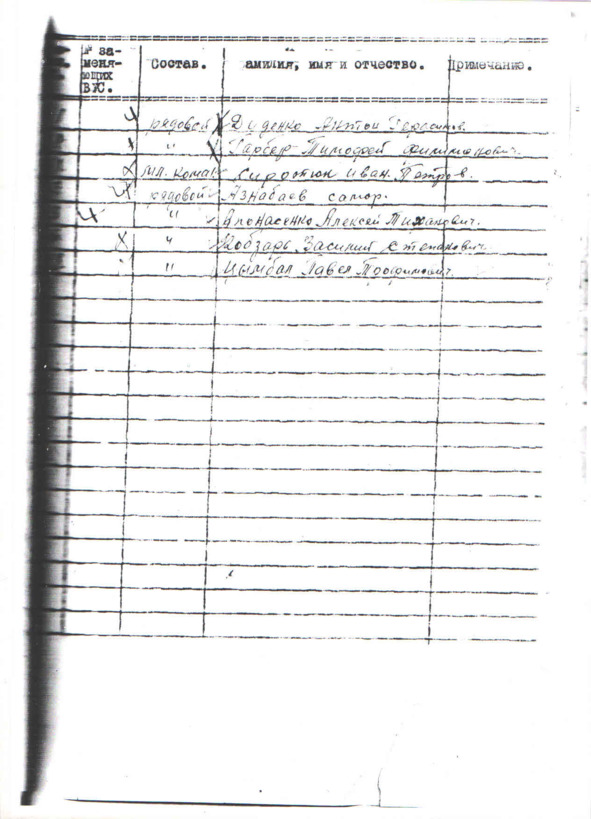 № за-
меня-
ющих
ВУС.
Состав.
амилия, имя и отчество.
Примечание.
рядовой Диденко Антон Герасимов.
" Гарбер Тимофей Филимонович.
мл. кома Сиротюк Иван. Петров.
рядовой Азнабаев сатор.
" Апонасенко Алексей Тиханович.
" Кобзарь Василий Степанович
" Цымбал Павел Трофимович